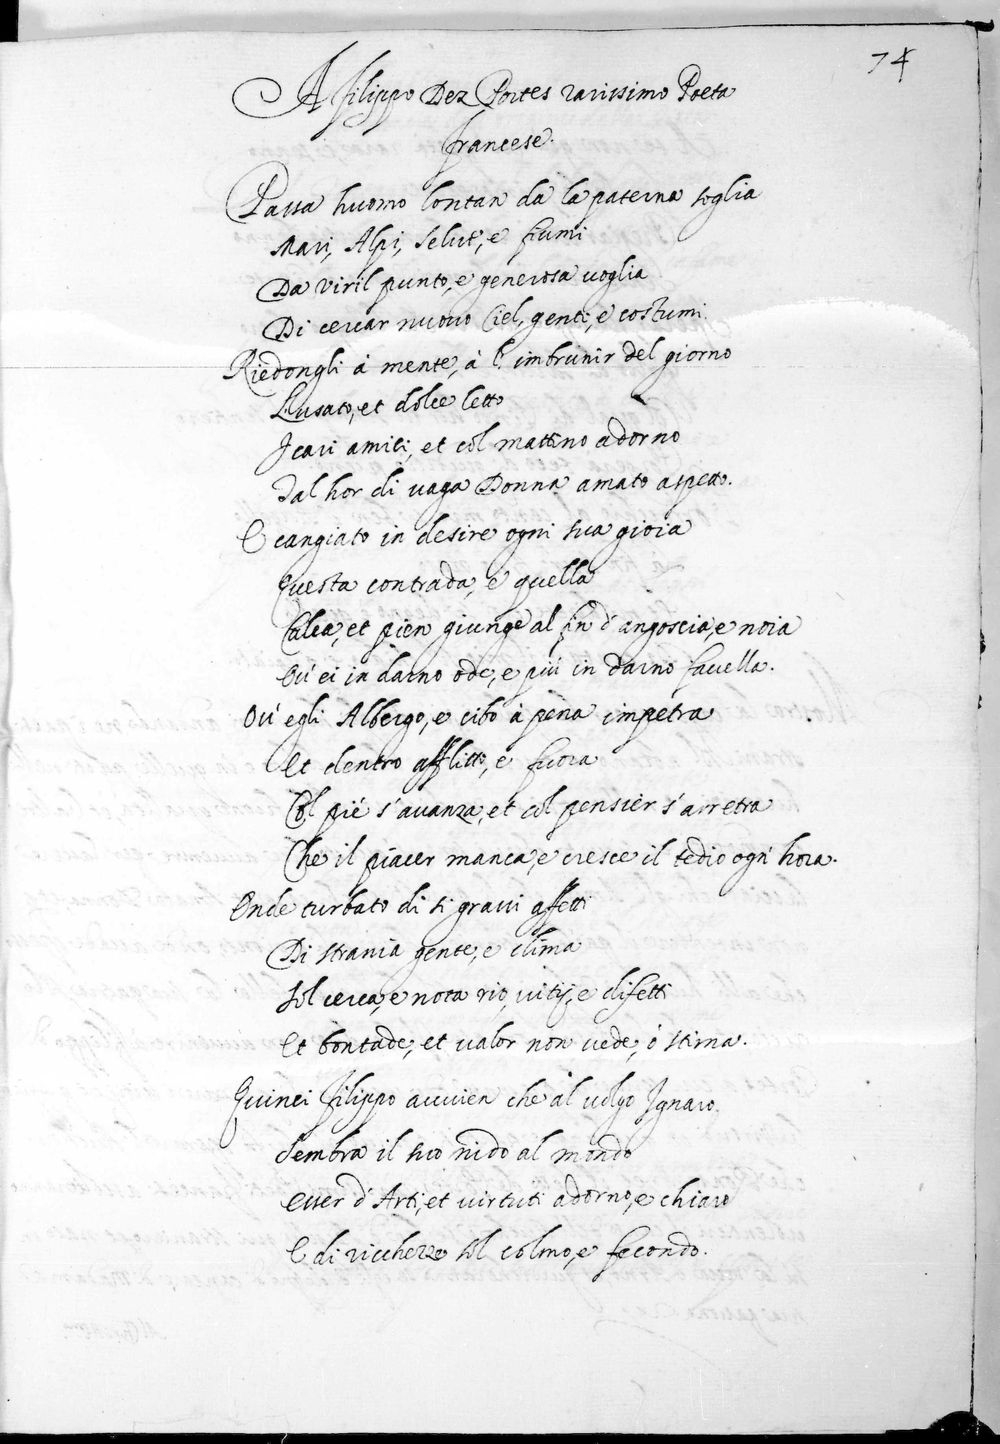 74
A Filippo Dez Portes rarissimo Poeta
francese.
Passa huomo lontan da la paterna soglia
Mari, Alpi, Selue, e fiumi
Da viril punto, e generosa uoglia
Di cercar nuouo Ciel, genti, e costumi.
Riedongli à mente, à l'imbrunir del giorno
L'usato, et dolce letto
I cari amici, et col mattino adorno
Tal hor di uaga Donna amato aspetto.
E cangiato in desire ogni sua gioia
Questa contrada, e quella
Calca, et pien giunge al fin d'angoscia, e noia
Ou' ei in darno ode, e più in darno fauella.
Ou' egli Albergo, e cibo à pena impetra
Et dentro afflitto, e fuora
Col piè s'auanza, et col pensier s'arretra
Che il piacer manca, e cresce il tedio ogn' hora.
Onde turbato di si graui affetti
Di strania gente, e clima
Sol cerca, e nota rio, uitij, e difetti
Et bontade, et ualor non uede, ò stima.
Quinci Filippo auuien che al uolgo Ignaro
Sembra il suo nido al mondo
Esser d'Arti, et uirtuti adorno, e chiaro
E di ricchezze sol colmo, e fecondo.